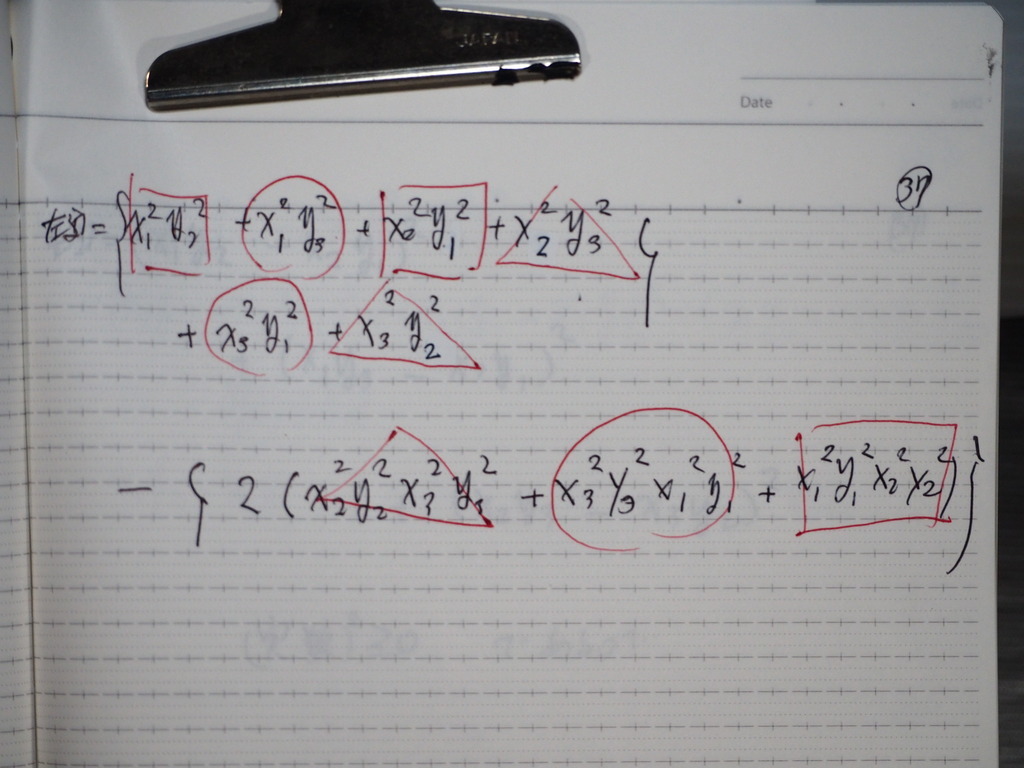 JAPAN
Date
37
左辺 = { x₁²y₂² + x₁²y₃² + x₂²y₁² + x₂²y₃²
+ x₃²y₁² + x₃²y₂² }
- { 2 ( x₂²y₂²x₃²y₃² + x₃²y₃²x₁²y₁² + x₁²y₁²x₂²y₂² ) }